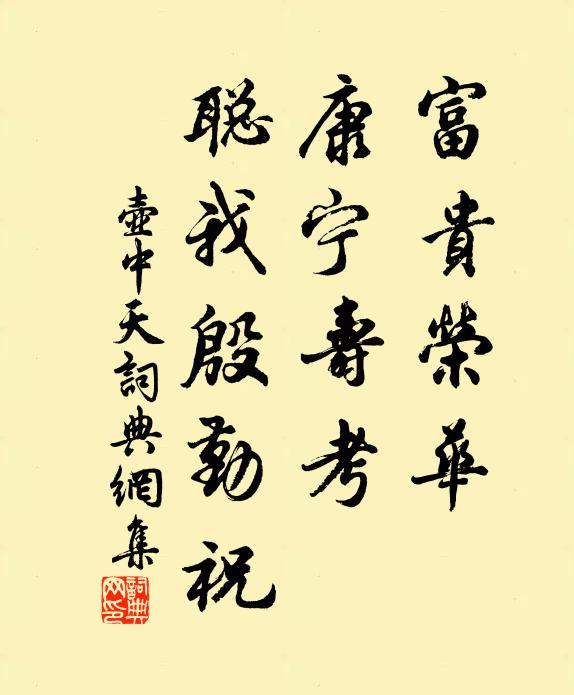 富貴榮華
康宁壽考
聪我殷勤祝
壺中天詞典網集
詞典網印